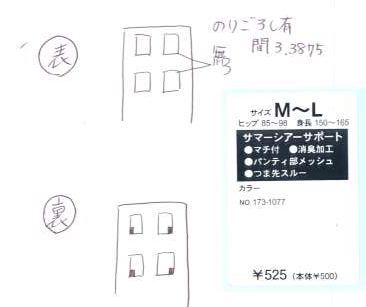 のりごろし有
間 3.3875
表
裏
サイズ M～L
ヒップ 85～98 身長 150～165
サマーシアーサポート
●マチ付 ●消臭加工
●パンティ部メッシュ
●つま先スルー
カラー
NO. 173-1077
¥525 (本体¥500)